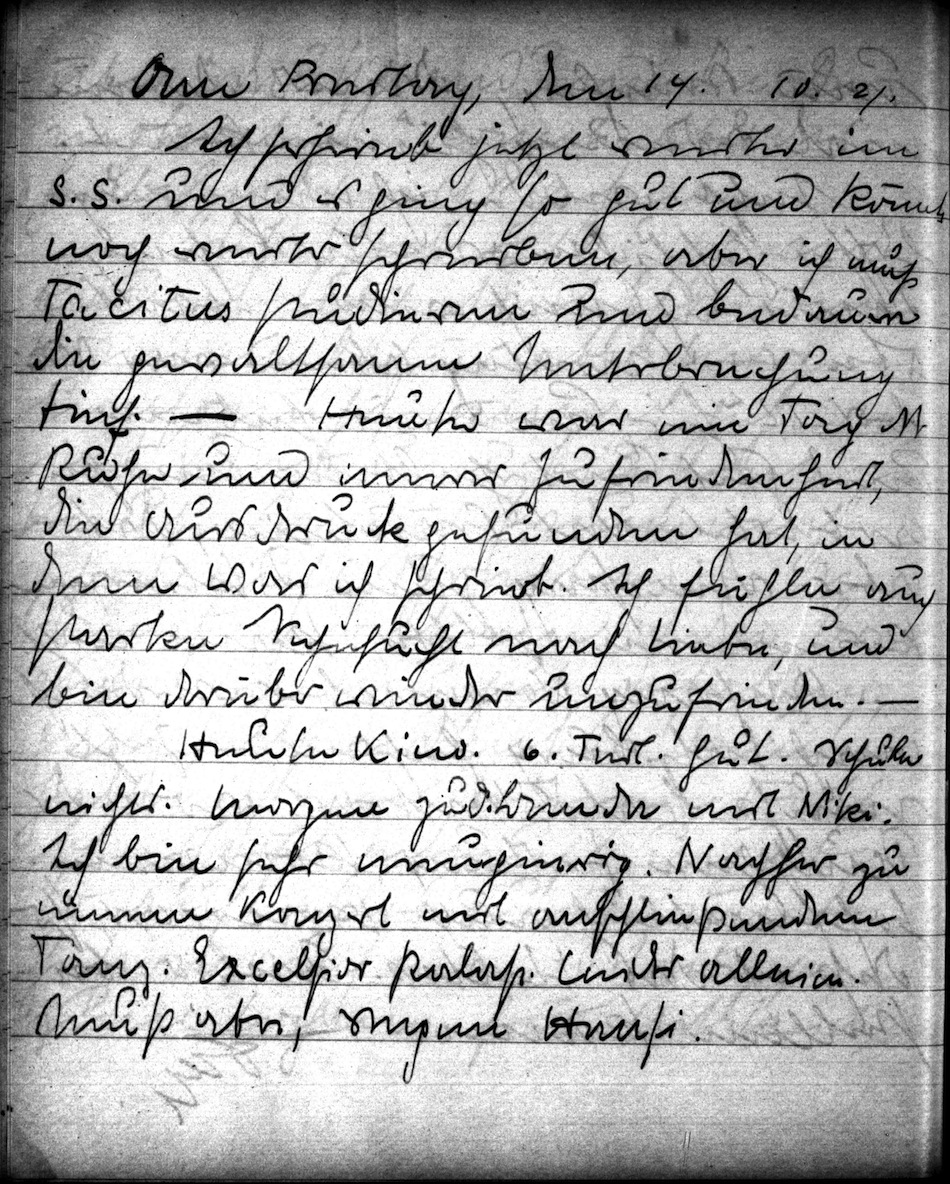 Am Freitag, den 14. 10. 21.
Ich schrieb jetzt weiter im
S.S. und es ging so gut und könnt
noch weiter schreiben, aber ich muß
Tacitus studieren und bedaure
die gewaltsame Unterbrechung
tief. — Heute war ein Tag der
Ruhe und innerer Zufriedenheit,
die Ausdruck gefunden hat, in
dem was ich schrieb. Ich fühle auch
starke Sehnsucht nach Liebe, und
bin darüber wieder unzufrieden. —
Heute Kino. 6. Teil. Gut. Schule
nichts. Morgen mit Miki.
Ich bin sehr neugierig. Nachher zu
einem Konzert mit anschließendem
Tanz. Excelsior Palast. Leider allein.
Muß aber, wegen Hansi.